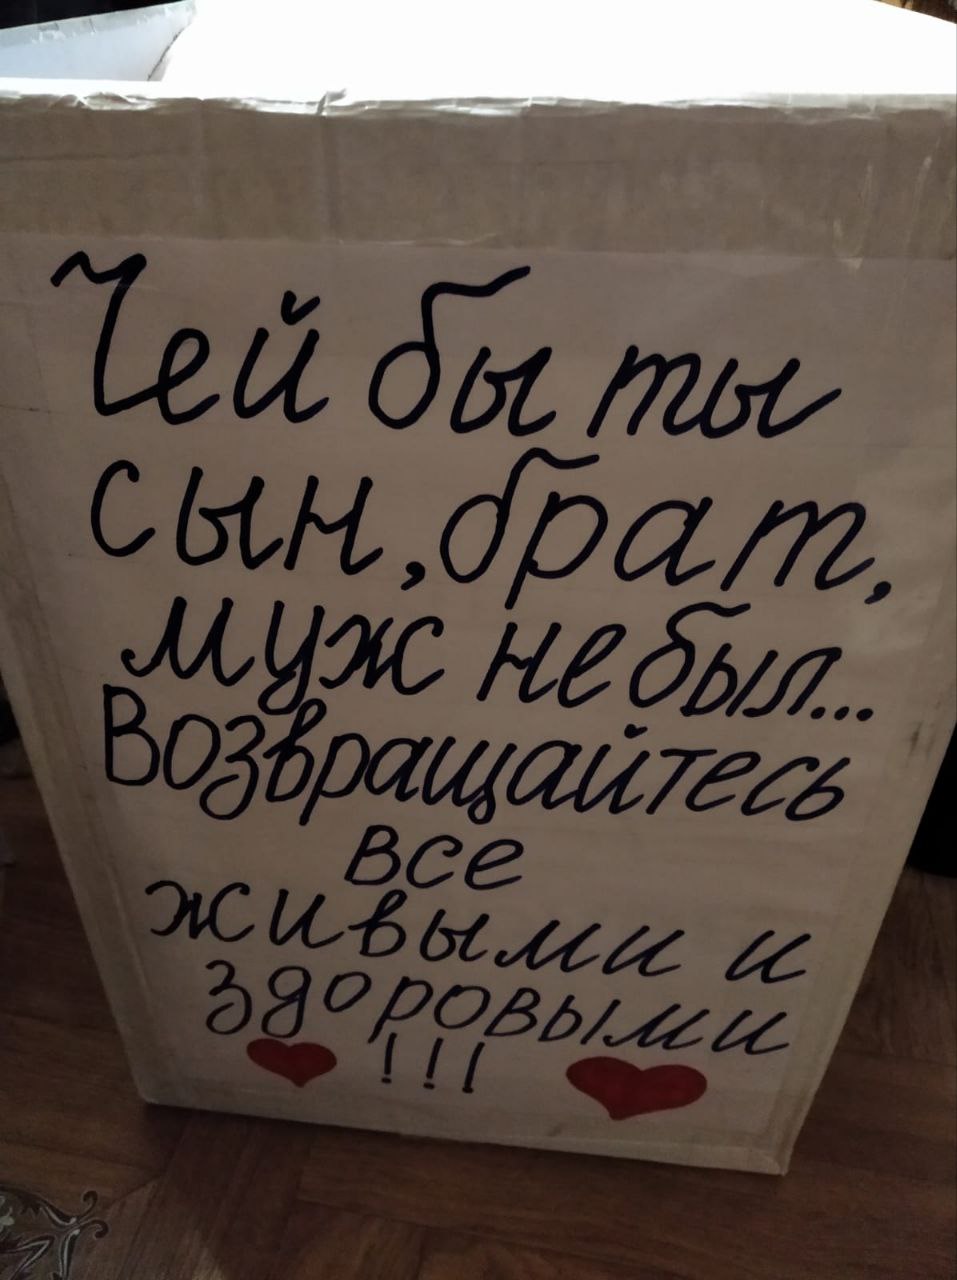 Чей бы ты
сын, брат,
муж не был...
Возвращайтесь
все
живыми и
здоровыми
!!!